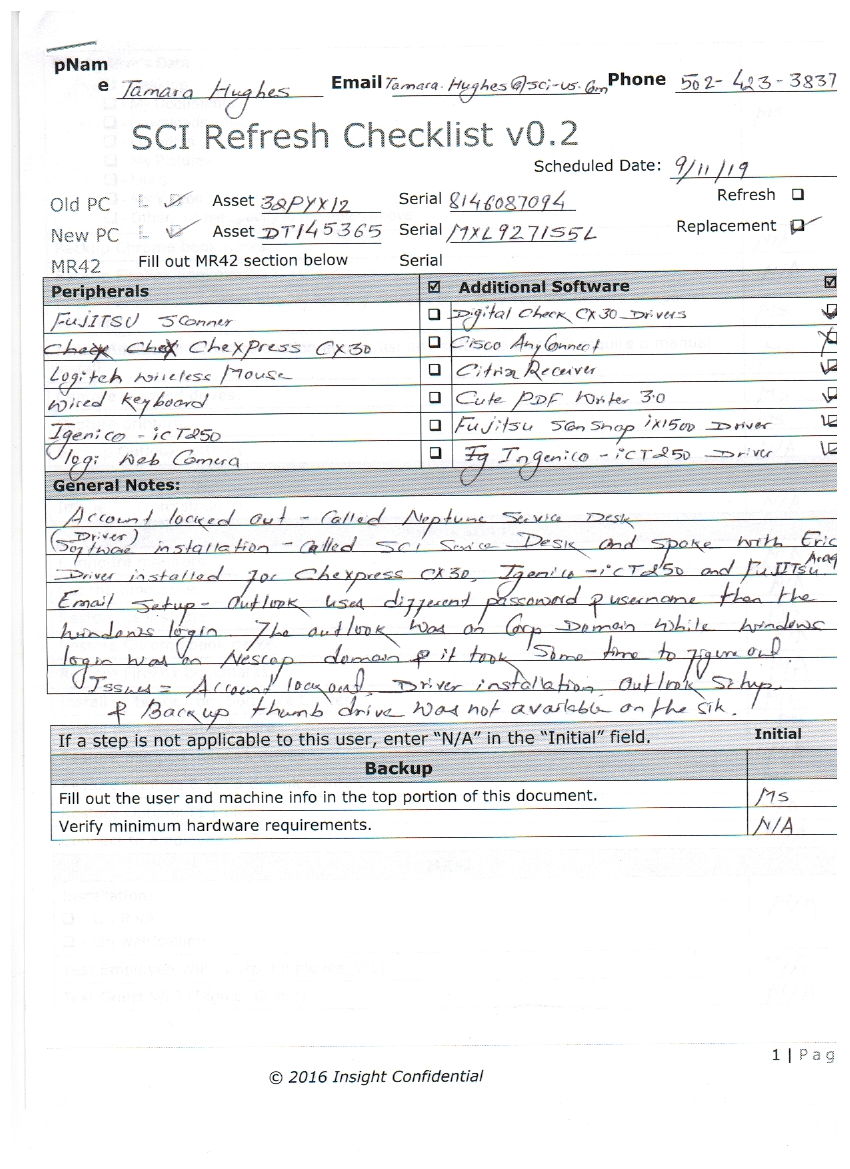 pNam
e Tamara Hughes Email Tamara.Hughes@sci-us.com Phone 502-423-3837
SCI Refresh Checklist v0.2
Scheduled Date: 9/11/19
Old PC L Asset 3QPYX12 Serial 8146087094 Refresh
New PC L Asset DT145365 Serial MXL9271S5L Replacement
MR42 Fill out MR42 section below Serial
Peripherals Additional Software
FUJITSU Scanner Digital Check CX30 Drivers
ChexPress CX30 Cisco AnyConnect
Logitch wireless Mouse Citrix Receiver
Wired Keyboard Cute PDF Writer 3.0
Igenico - iCT250 Fujitsu ScanSnap iX1500 Driver
logi Web Camera Ingenico - iCT250 Driver
General Notes:
Account locked out - Called Neptune Service Desk
(Driver)
Software installation - Called SCI Service Desk and spoke with Eric
Driver installed for Chexpress CX30, Igenico - iCT250 and FUJITSU.
Email Setup - Outlook uses different password & username then the
windows login. The outlook was on Corp Domain while windows
login was on Nescop domain & it took some time to figure out.
Issues = Account lockout, Driver installation, Outlook Setup.
& Backup thumb drive was not available on the sik.
If a step is not applicable to this user, enter “N/A” in the “Initial” field. Initial
Backup
Fill out the user and machine info in the top portion of this document. MS
Verify minimum hardware requirements. N/A
1 | Pag
© 2016 Insight Confidential